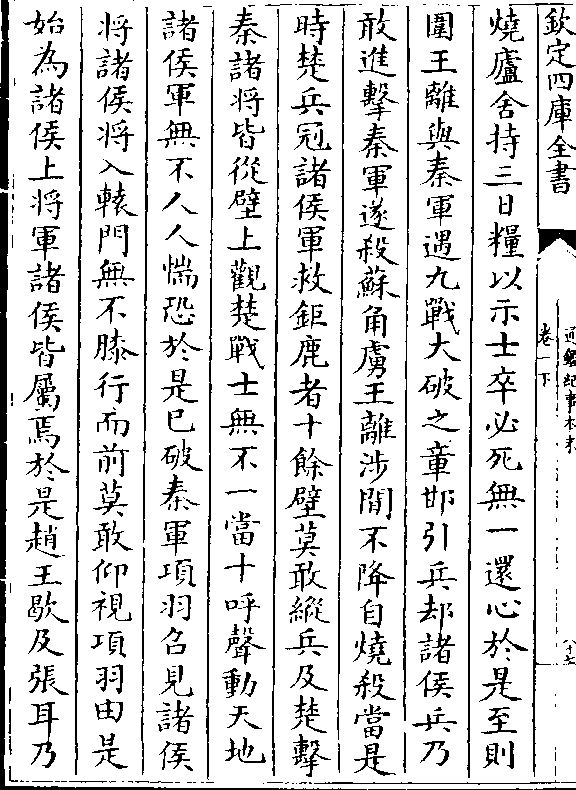 欽定四庫全書
通鑑紀事本末
卷一下
八十七
燒廬舍持三日糧以示士卒必死無一還心於是至則
圍王離與秦軍遇九戰大破之章邯引兵却諸侯兵乃
敢進擊秦軍遂殺蘇角虜王離涉間不降自燒殺當是
時楚兵冠諸侯軍救鉅鹿者十餘壁莫敢縱兵及楚擊
秦諸將皆從壁上觀楚戰士無不一當十呼聲動天地
諸侯軍無不人人惴恐於是已破秦軍項羽召見諸侯
將諸侯將入轅門無不膝行而前莫敢仰視項羽由是
始為諸侯上將軍諸侯皆屬焉於是趙王歇及張耳乃